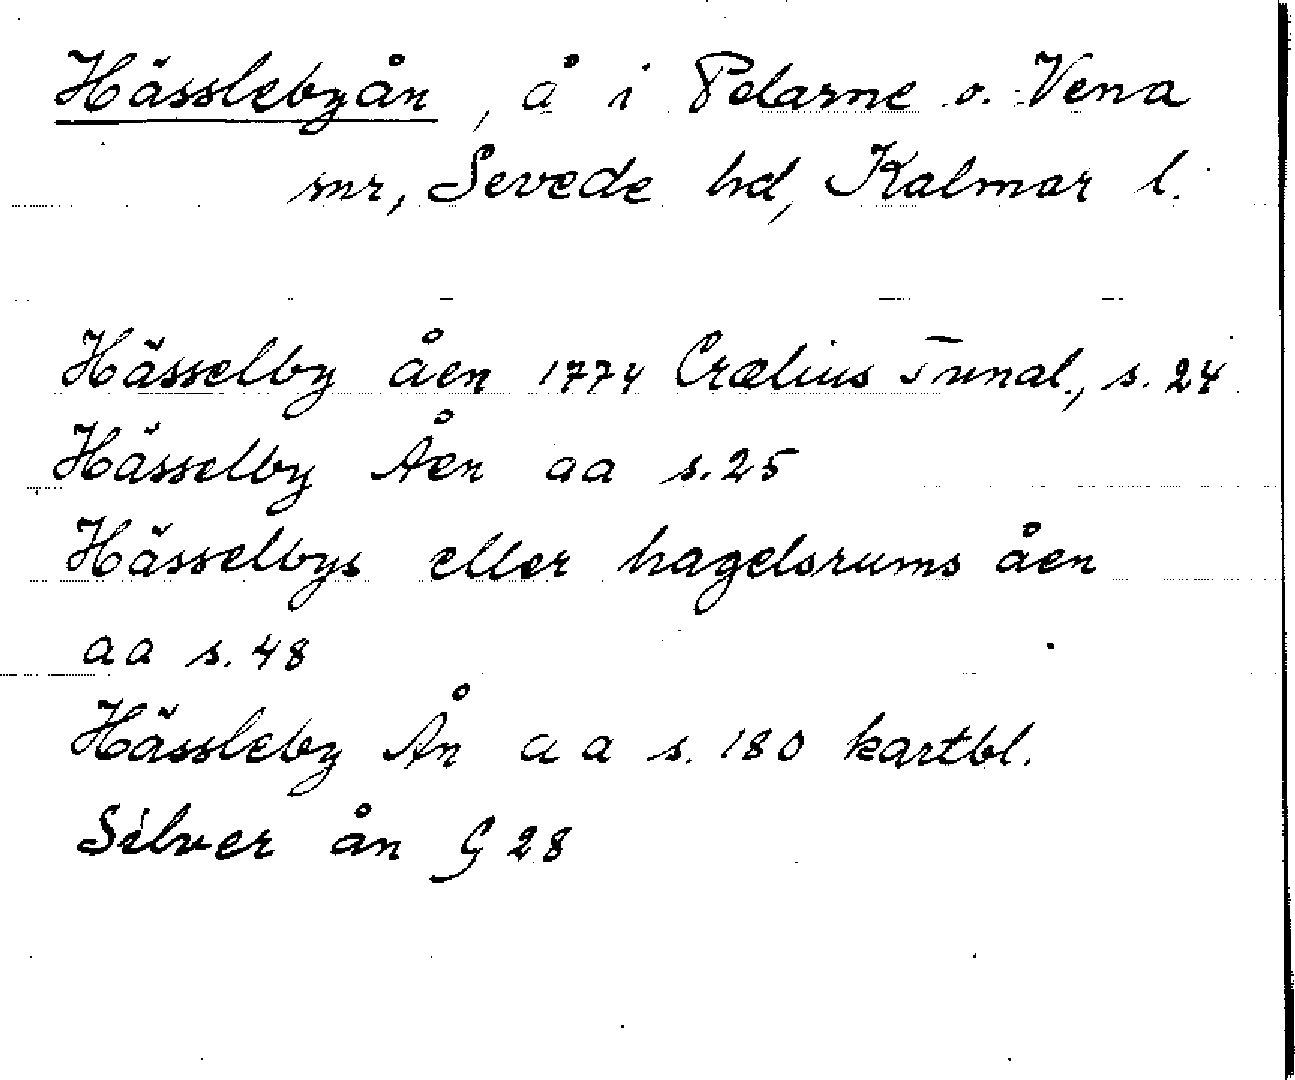 Hässlebyån, å i Pelarne o. Vena
snr, Sevede hd, Kalmar l.
Hässelby åen 1774 Crælius Tunal., s. 24
Hässelby Åen aa s. 25
Hässelbys eller hagelsrums åen
aa s. 48
Hässleby Ån aa s. 180 kartbl.
Silver ån G 28